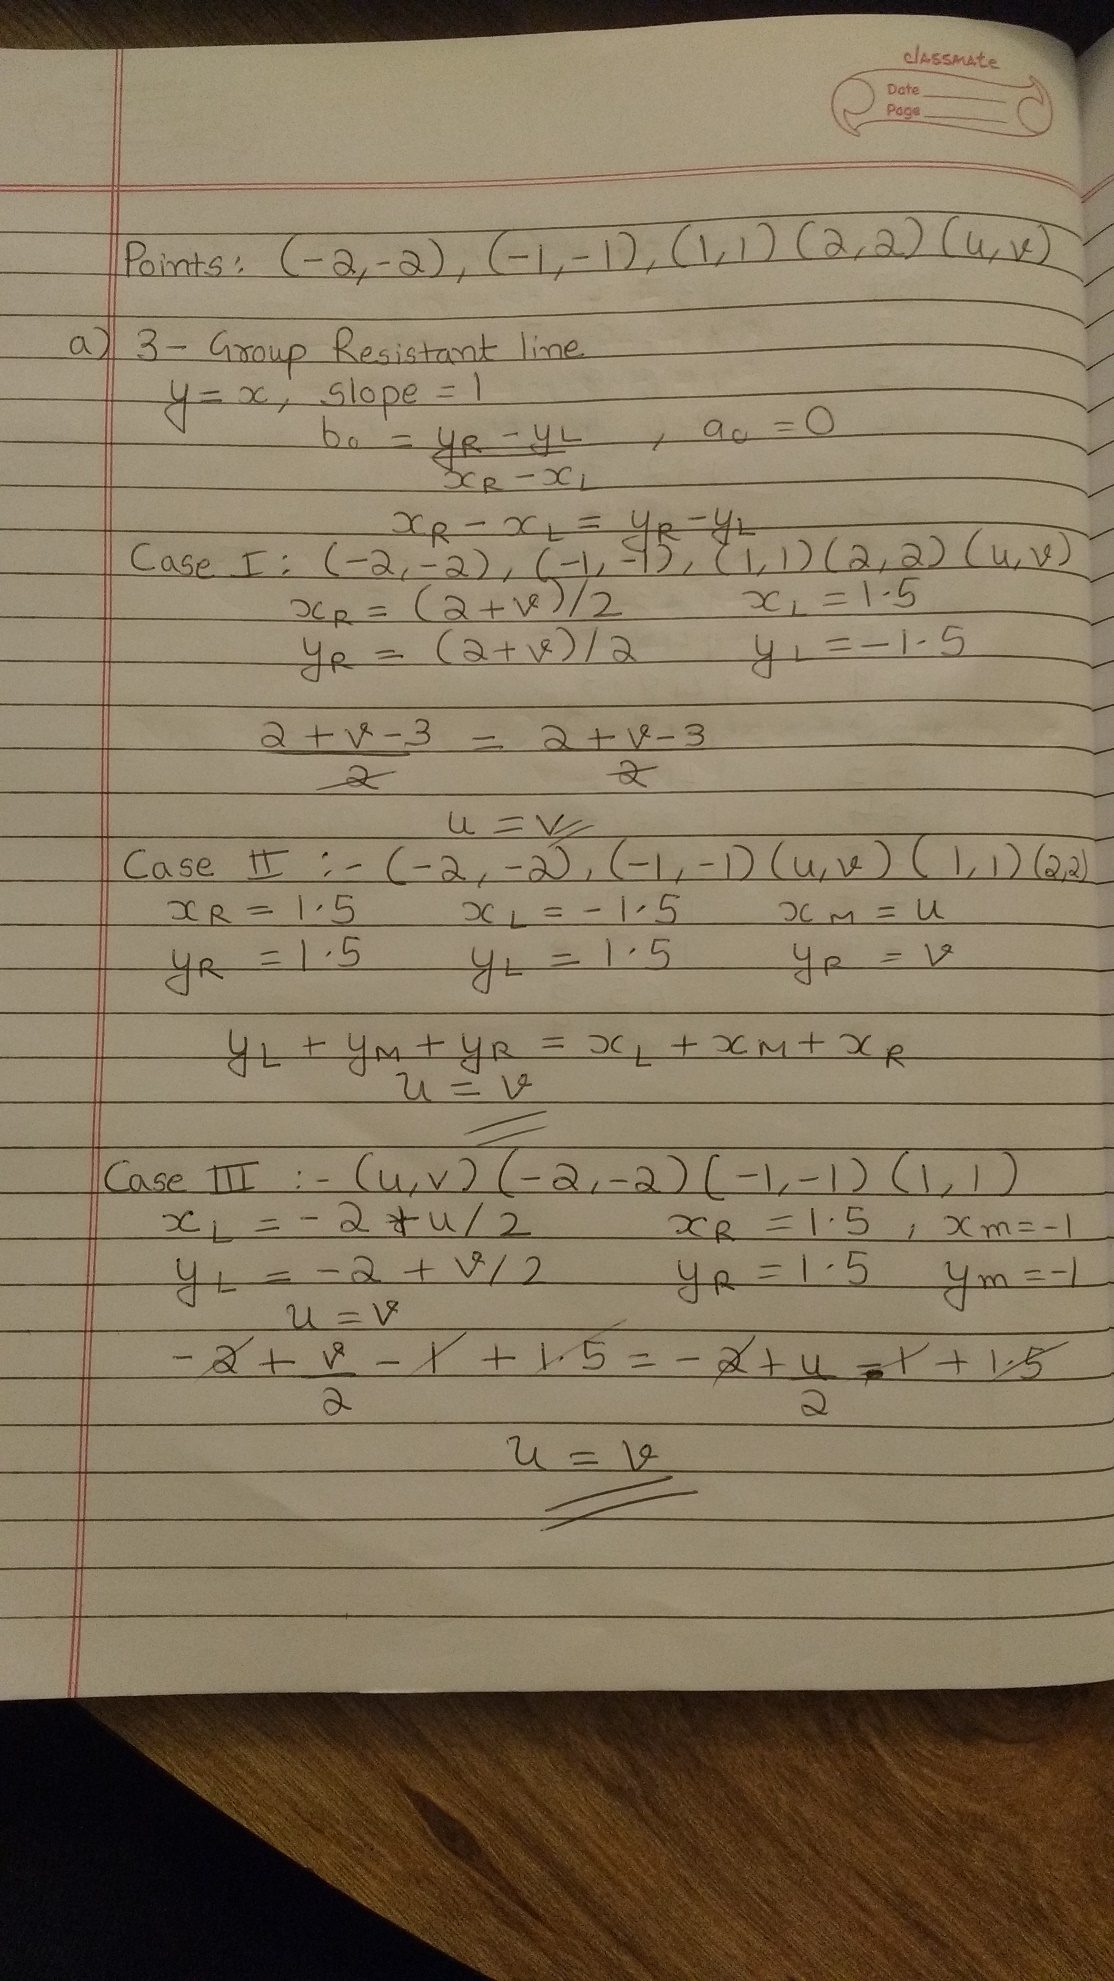 classmate
Date
Page
Points: (-2,-2), (-1,-1), (1,1) (2,2) (u,v)
a) 3- Group Resistant line
y = x, slope = 1
b₀ = (yR - yL)/(xR - xL), a₀ = 0
xR - xL = yR - yL
Case I : (-2,-2), (-1,-1), (1,1) (2,2) (u,v)
xR = (2+v)/2 xL = 1.5
yR = (2+v)/2 yL = -1.5
(2+v-3)/2 = (2+v-3)/2
u = v
Case II :- (-2,-2), (-1,-1) (u,v) (1,1) (2,2)
xR = 1.5 xL = -1.5 xM = u
yR = 1.5 yL = 1.5 yR = v
yL + yM + yR = xL + xM + xR
u = v
Case III :- (u,v) (-2,-2) (-1,-1) (1,1)
xL = -2+u/2 xR = 1.5, xm = -1
yL = -2+v/2 yR = 1.5 ym = -1
u = v
-2 + v/2 - 1 + 1.5 = -2 + u/2 - 1 + 1.5
u = v